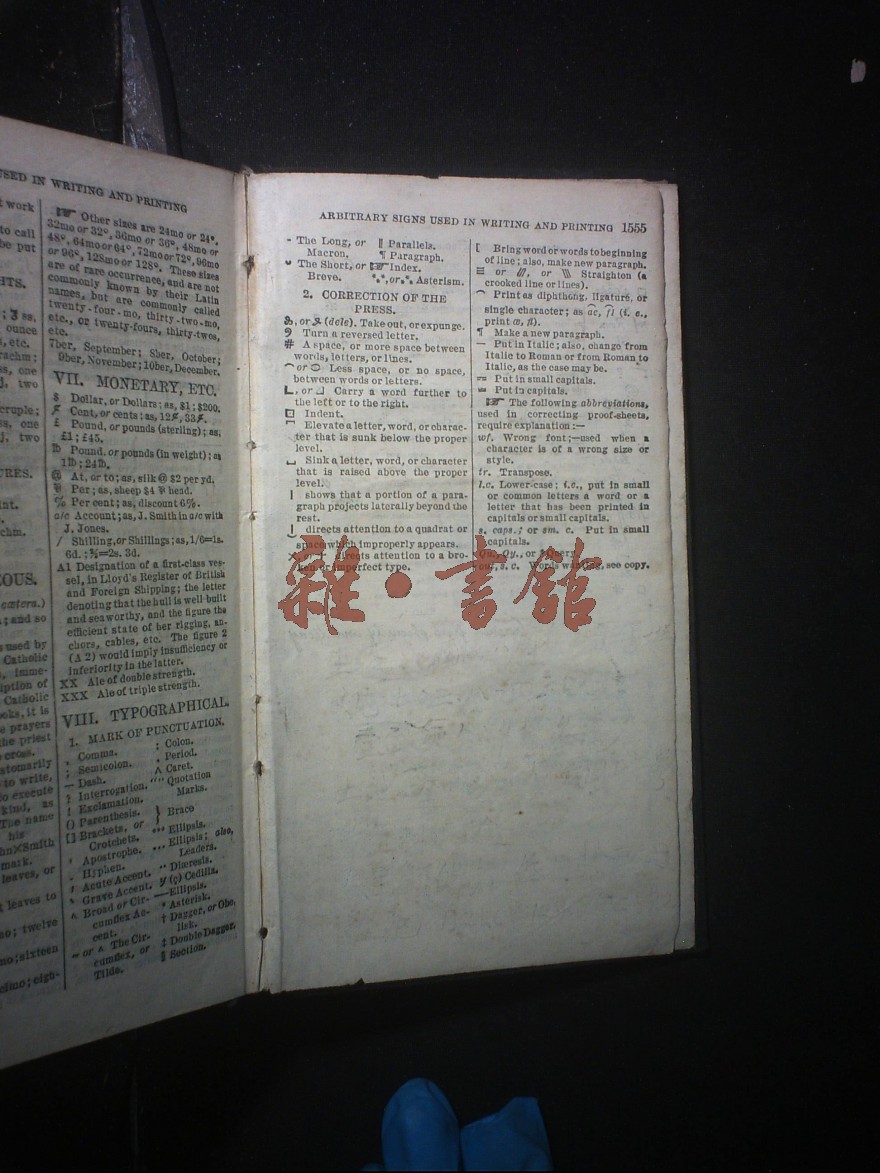 USED IN WRITING AND PRINTING
work
to call
be put
HTS.
ounce
etc.
rachm:
one
two
cruple;
one
two
URES.
int.
chm.
EOUS.
cætera.)
; and so
used by
Catholic
imme-
iption of
Catholic
oks, it is
prayers
the priest
cross.
stomarily
to write,
to execute
kind, as
The name
his
hn×Smith
mark.
leaves, or
leaves to
mo; twelve
mo; sixteen
cimo; eigh-
☞ Other sizes are 24mo or 24°,
32mo or 32°, 36mo or 36°, 48mo or
48°, 64mo or 64°, 72mo or 72°, 96mo
or 96°, 128mo or 128°. These sizes
are of rare occurrence, and are not
commonly known by their Latin
names, but are commonly called
twenty-four-mo, thirty-two-mo,
etc., or twenty-fours, thirty-twos,
etc.
7ber, September; 8ber, October;
9ber, November; 10ber, December.
VII. MONETARY, ETC.
$ Dollar, or Dollars; as, $1; $200.
Cent, or cents; as, 12, 33.
£ Pound, or pounds (sterling); as,
£1; £45.
℔ Pound, or pounds (in weight); as
1℔; 24℔.
@ At, or to; as, silk @ $2 per yd.
⅌ Per; as, sheep $4 ⅌ head.
% Per cent; as, discount 6%.
a/c Account; as, J. Smith in a/c with
J. Jones.
/ Shilling, or Shillings; as, 1/6=1s.
6d.; ⅔=2s. 3d.
A1 Designation of a first-class ves-
sel, in Lloyd's Register of British
and Foreign Shipping; the letter
denoting that the hull is well built
and seaworthy, and the figure the
efficient state of her rigging, an-
chors, cables, etc. The figure 2
(A 2) would imply insufficiency or
inferiority in the latter.
XX Ale of double strength.
XXX Ale of triple strength.
VIII. TYPOGRAPHICAL.
1. MARK OF PUNCTUATION.
, Comma.
; Semicolon.
— Dash.
? Interrogation.
! Exclamation.
() Parenthesis.
[] Brackets, or
Crotchets.
' Apostrophe.
- Hyphen.
´ Acute Accent.
` Grave Accent.
^ Broad or Cir-
cumflex Ac-
cent.
~ or ^ The Cir-
cumflex, or
Tilde.
: Colon.
. Period.
‸ Caret.
“ ” Quotation
Marks.
} Brace
*** Ellipsis.
... Ellipsis; also,
Leaders.
¨ Diæresis.
(ç) Cedilla.
— Ellipsis.
* Asterisk.
† Dagger, or Obe-
lisk.
‡ Double Dagger.
§ Section.
ARBITRARY SIGNS USED IN WRITING AND PRINTING 1555
¯ The Long, or
Macron.
˘ The Short, or
Breve.
‖ Parallels.
¶ Paragraph.
☞ Index.
*⁎*, or ⁂, Asterism.
2. CORRECTION OF THE
PRESS.
₰, or (dele). Take out, or expunge.
Turn a reversed letter.
# A space, or more space between
words, letters, or lines.
⁀ or Less space, or no space,
between words or letters.
L, or ⅃ Carry a word further to
the left or to the right.
□ Indent.
Elevate a letter, word, or charac-
ter that is sunk below the proper
level.
Sink a letter, word, or character
that is raised above the proper
level.
| shows that a portion of a para-
graph projects laterally beyond the
rest.
directs attention to a quadrat or
space which improperly appears.
×, or + directs attention to a bro-
ken or imperfect type.
[ Bring word or words to beginning
of line; also, make new paragraph.
≡ or ///, or \\\ Straighten (a
crooked line or lines).
⁀ Print as diphthong, ligature, or
single character; as ae, fl (i. e.,
print æ, fl).
¶ Make a new paragraph.
— Put in Italic; also, change from
Italic to Roman or from Roman to
Italic, as the case may be.
= Put in small capitals.
≡ Put in capitals.
☞ The following abbreviations,
used in correcting proof-sheets,
require explanation:—
wf. Wrong font;—used when a
character is of a wrong size or
style.
tr. Transpose.
l.c. Lower-case; i.e., put in small
or common letters a word or a
letter that has been printed in
capitals or small capitals.
s. caps.; or sm. c. Put in small
capitals.
Qu., Qy., or ? Query.
out, s. c. Words wanting, see copy.
雜·書館